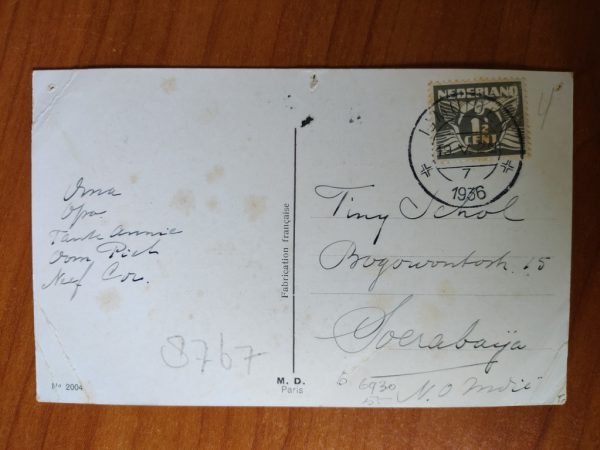 NEDERLAND
1½
CENT
7
1936
4
Oma
Opa
Tante Annie
Oom Piet
Neef Cor.
Fabrication française
Tiny Schol
15
Soerabaja
N.O Indië
8767
6930
No 2004
M. D.
Paris